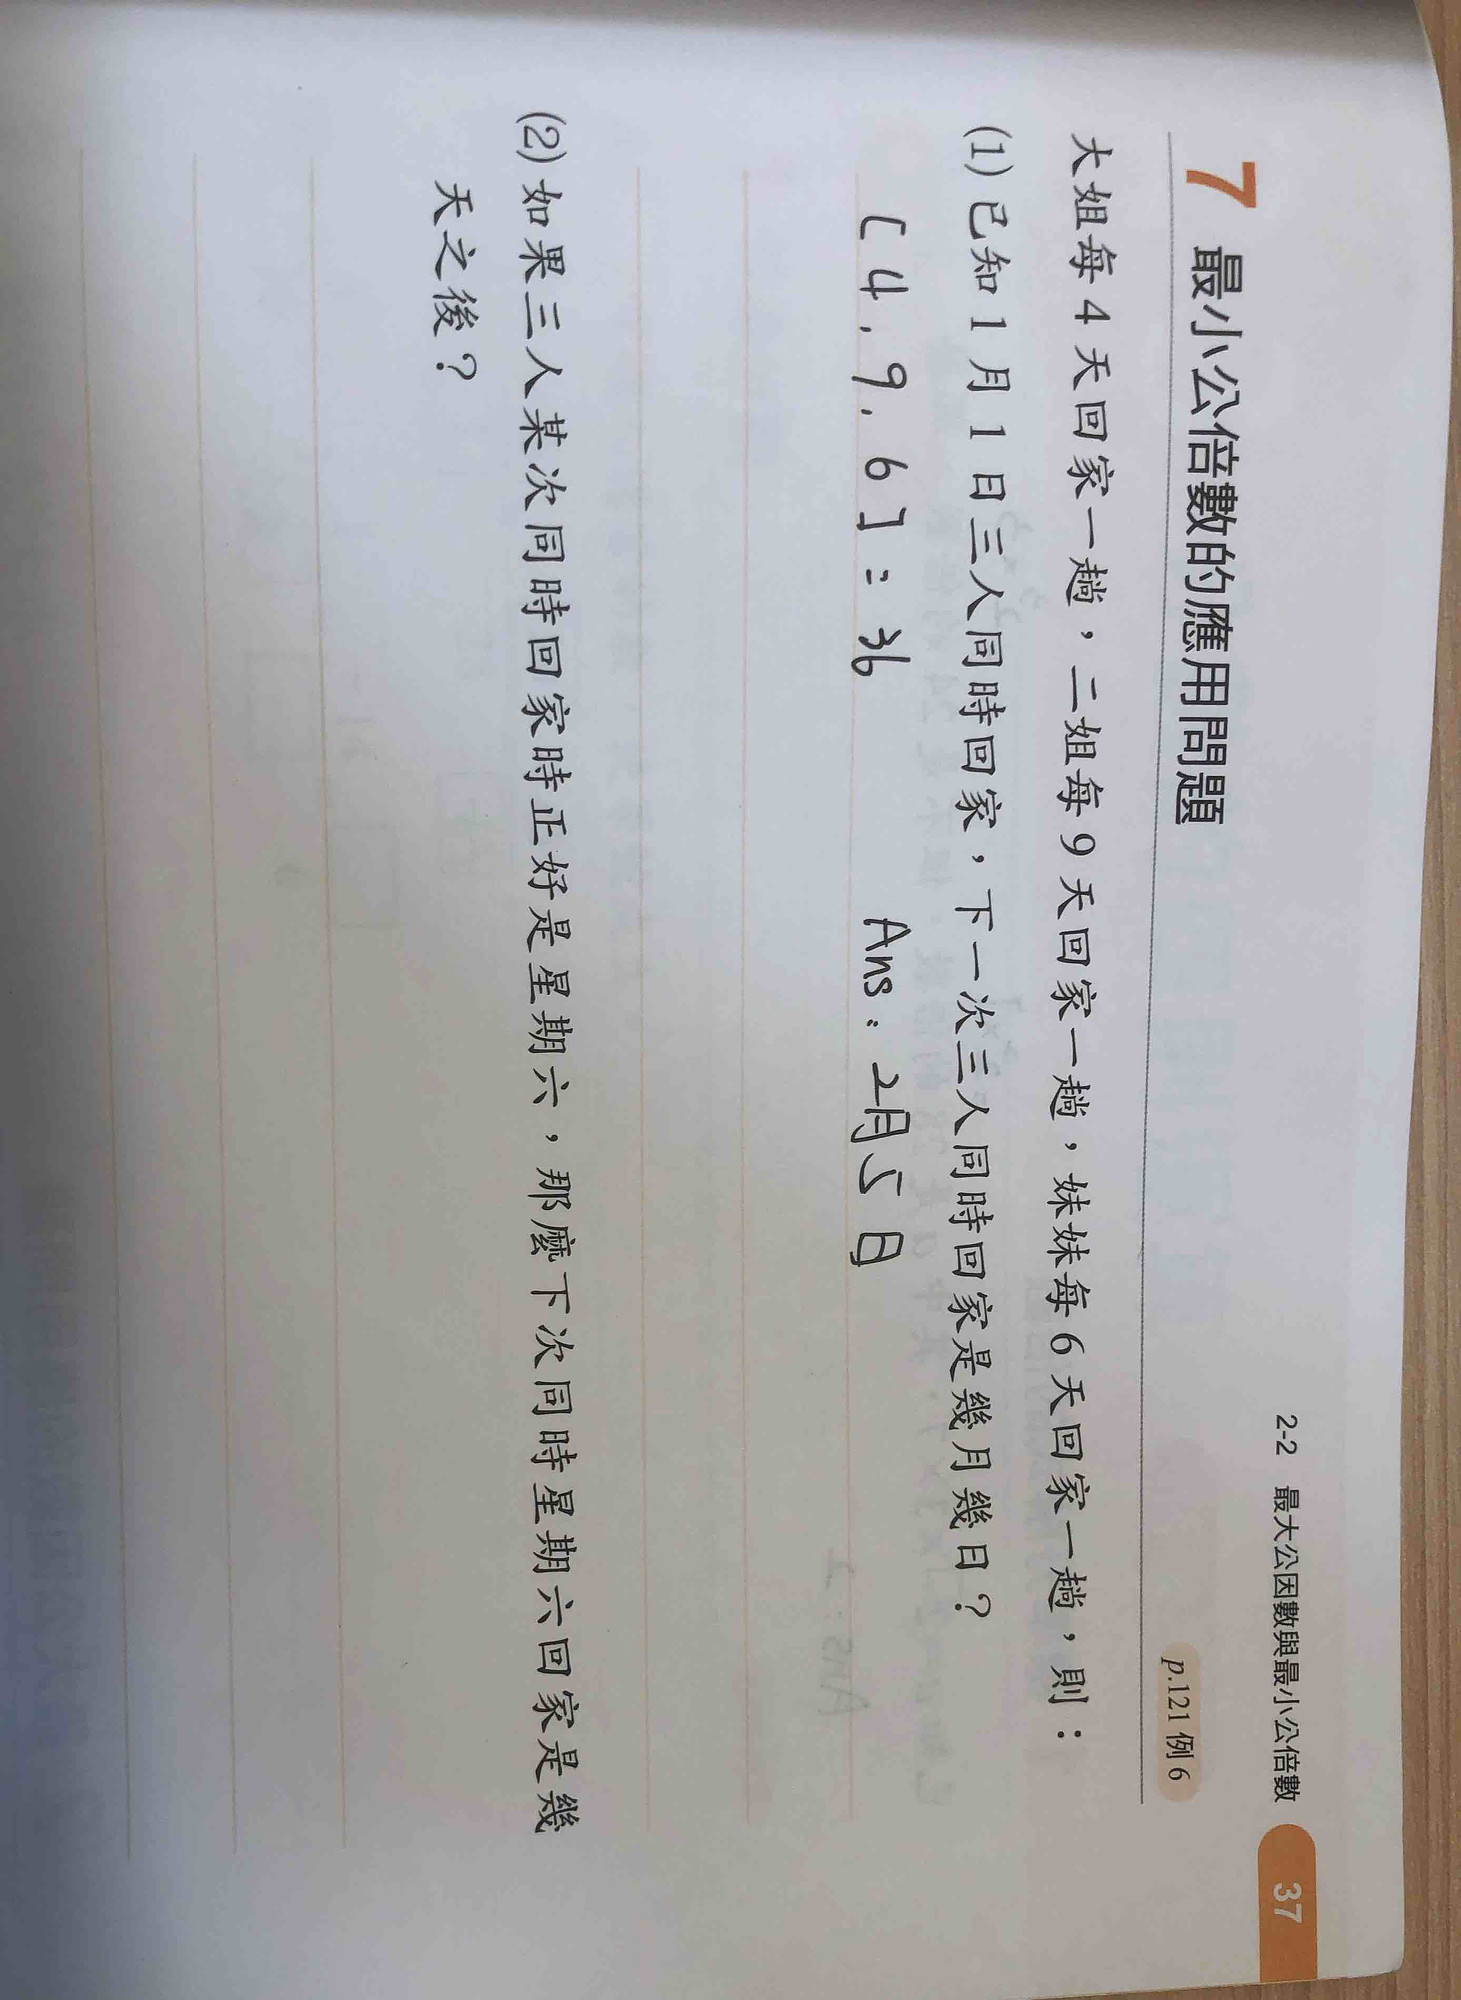 2-2 最大公因數與最小公倍數 37
7 最小公倍數的應用問題 p.121 例 6
大姐每 4 天回家一趟,二姐每 9 天回家一趟,妹妹每 6 天回家一趟,則:
(1) 已知 1 月 1 日三人同時回家,下一次三人同時回家是幾月幾日?
[4, 9, 6] = 36 Ans: 2月5日
(2) 如果三人某次同時回家時正好是星期六,那麼下次同時星期六回家是幾
天之後?